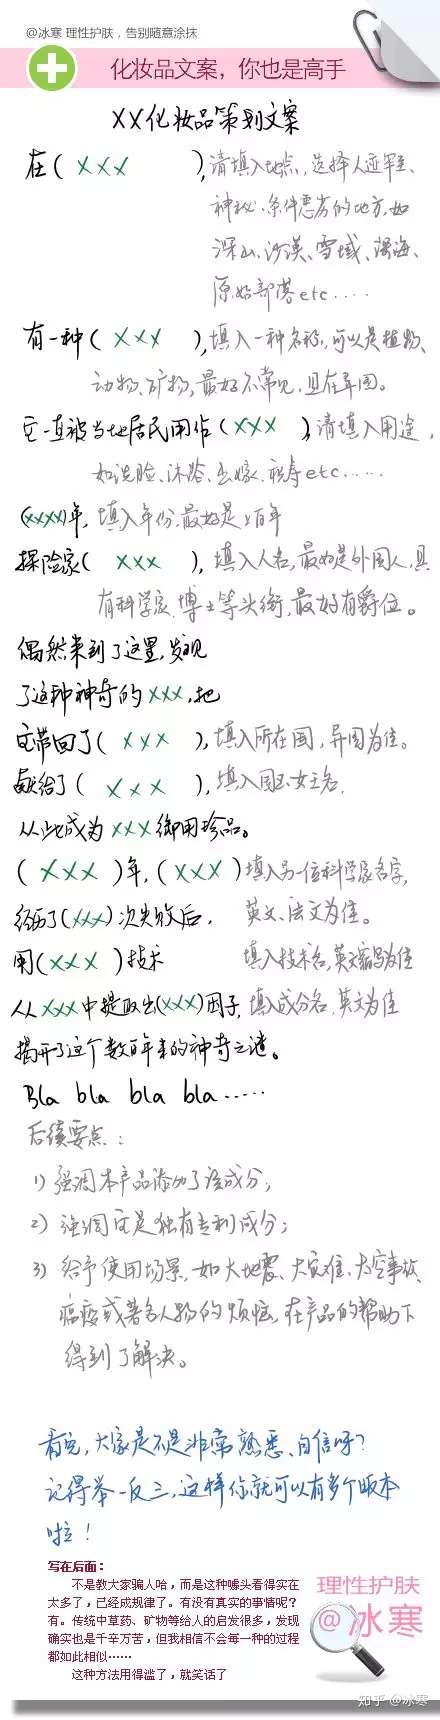 @冰寒 理性护肤，告别随意涂抹
化妆品文案，你也是高手
XX化妆品策划文案
在( XXX ),请填入地点，选择人迹罕至、
神秘、条件恶劣的地方，如
深山、沙漠、雪域、深海、
原始部落etc.....
有一种( XXX ),填入一种名称，可以是植物、
动物、矿物，最好不常见，且在异国。
它一直被当地居民用作(XXX),请填入用途，
如洗脸、沐浴、出嫁、祝寿etc......
(XXXX)年,填入年份，最好是上百年
探险家( XXX ),填入人名，最好是外国人，具
有科学家、博士等头衔，最好有爵位。
偶然来到了这里，发现
了这种神奇的XXX，把
它带回了( XXX ),填入所在国，异国为佳。
献给了( XXX ),填入国王、女王名.
从此成为XXX御用珍品。
( XXX )年，(XXX)填入另一位科学家名字，
经历了(XXX)次失败后，英文、法文为佳。
用(XXX)技术 填入技术名，英文缩写为佳
从XXX中提取出(XXX)因子，填成分名，英文为佳
揭开了这个数百年来的神奇之谜。
Bla bla bla bla.....
后续要点：
1) 强调本产品添加了该成分；
2) 强调它是独有专利成分；
3) 给予使用场景，如大地震、大灾难、太空事故、
瘟疫或著名人物的烦恼，在产品的帮助下
得到了解决。
看完，大家是不是非常熟悉、自信呀？
记得举一反三，这样你就可以有多个版本
啦！
写在后面：
不是教大家骗人哈，而是这种噱头看得实在
太多了，已经成规律了。有没有真实的事情呢？
有。传统中草药、矿物等给人的启发很多，发现
确实也是千辛万苦，但我相信不会每一种的过程
都如此相似……
这种方法用得滥了，就笑话了
理性护肤
@冰寒
知乎 @冰寒